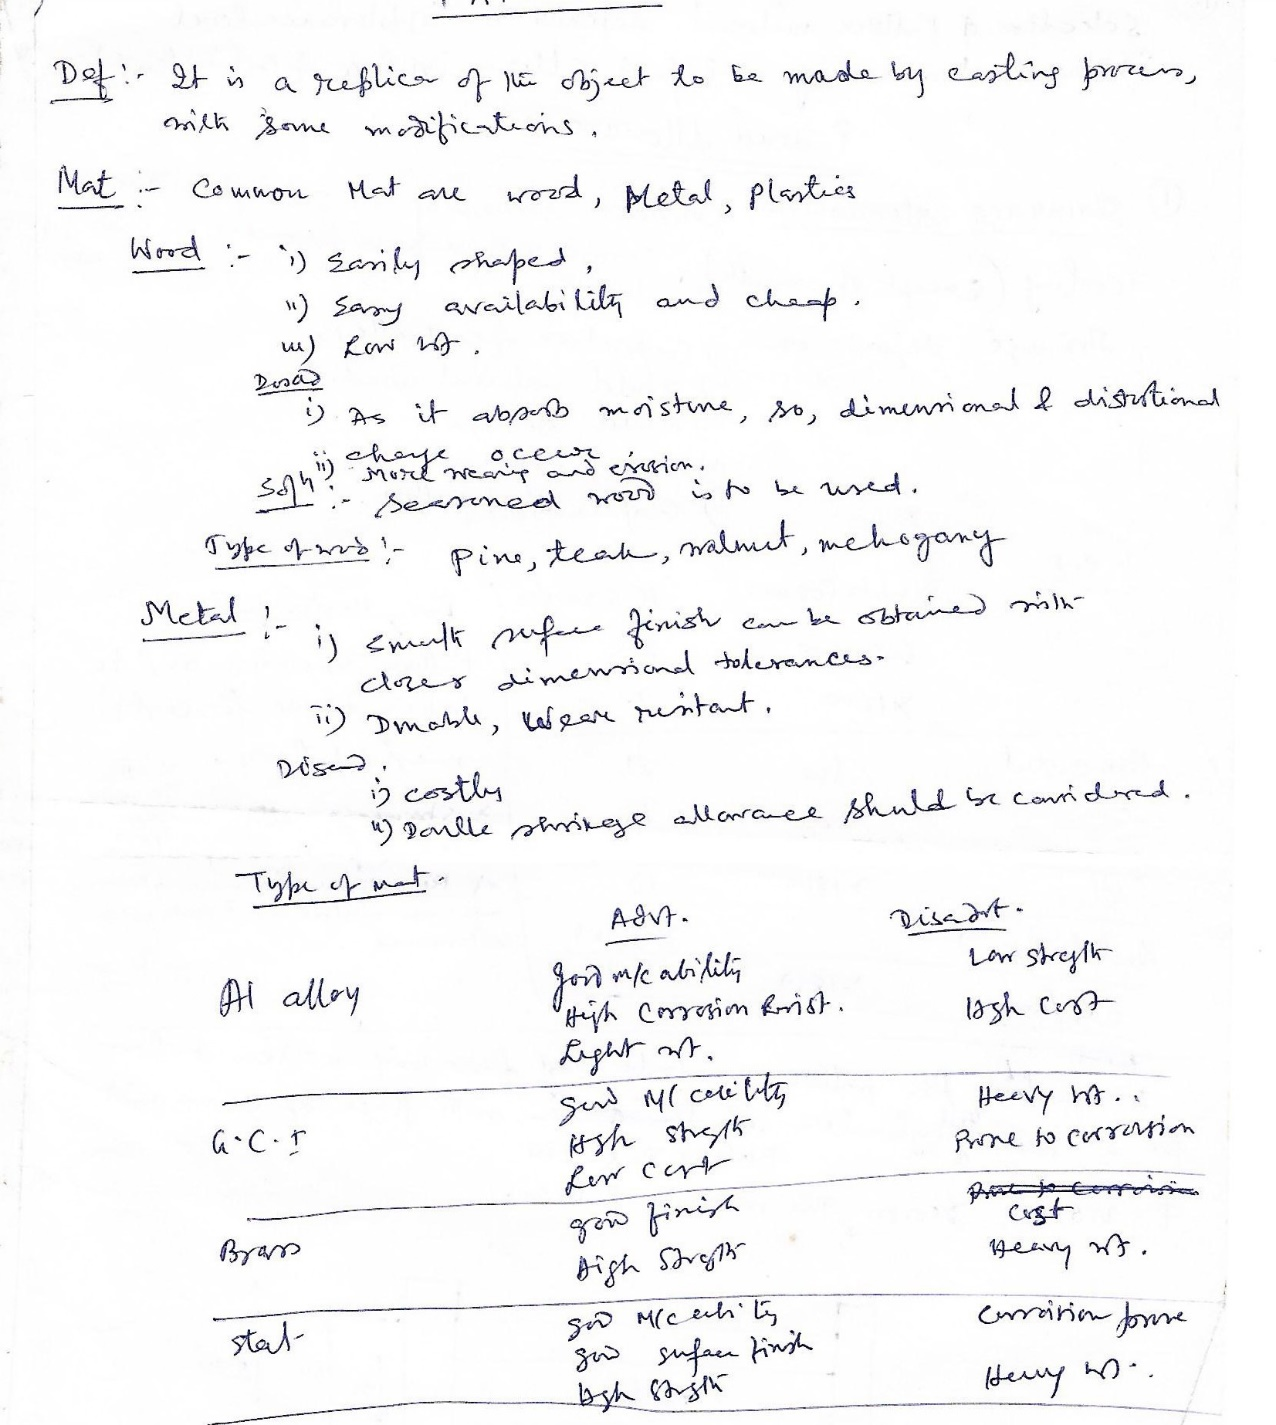 Def :- It is a replica of the object to be made by casting process,
with some modifications.
Mat :- Common Mat are wood, Metal, Plastics
Wood :- i) Easily shaped,
ii) Easy availability and cheap.
iii) Low wt.
Disad
i) As it absorb moisture, so, dimensional & distortional
change occur
ii) More wearing and erosion.
Soln :- Seasoned wood is to be used.
Type of wood :- Pine, teak, walnut, mehogany
Metal :- i) Smooth surface finish can be obtained with
closer dimensional tolerances.
ii) Durable, Wear resistant.
Disad.
i) costly
ii) Double shrinkage allowance should be considered.
Type of mat.
Advt. Disadvt.
Al alloy good m/c ability Low strength
High Corrosion Resist. High Cost
Light wt.
G.C.I good M/C ability Heavy wt.
High Strength Prone to corrosion
Low Cost
Brass good finish Cost
High Strength Heavy wt.
Steel good M/C ability Corrosion prone
good surface finish
High Strength Heavy wt.